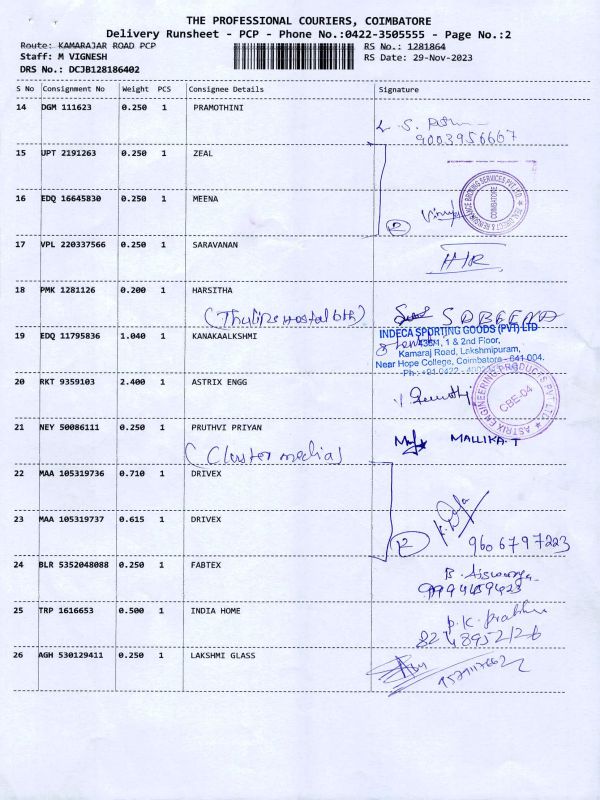 THE PROFESSIONAL COURIERS, COIMBATORE
Delivery Runsheet - PCP - Phone No.:0422-3505555 - Page No.:2
Route: KAMARAJAR ROAD PCP RS No.: 1281864
Staff: M VIGNESH RS Date: 29-Nov-2023
DRS No.: DCJB128186402
S No Consignment No Weight PCS Consignee Details Signature
14 DGM 111623 0.250 1 PRAMOTHINI
9003956667
15 UPT 2191263 0.250 1 ZEAL
16 EDQ 16645830 0.250 1 MEENA
COIMBATORE
17 VPL 220337566 0.250 1 SARAVANAN
18 PMK 1281126 0.200 1 HARSITHA
SABEENA
19 EDQ 11795836 1.040 1 KANAKAALKSHMI
INDECA SPORTING GOODS (PVT) LTD
1 & 2nd Floor,
Kamaraj Road, Lakshmipuram,
Near Hope College, Coimbatore - 641 004.
Ph : +91 0422 -
20 RKT 9359103 2.400 1 ASTRIX ENGG
ASTRIX ENGINEERING PRODUCTS PVT LTD
CBE-04
21 NEY 50086111 0.250 1 PRUTHVI PRIYAN
MALLIKA.T
(Cluster media)
22 MAA 105319736 0.710 1 DRIVEX
23 MAA 105319737 0.615 1 DRIVEX
9606797223
24 BLR 5352048088 0.250 1 FABTEX
B. Aiswarya
25 TRP 1616653 0.500 1 INDIA HOME
P.K. Prabhu
26 AGH 530129411 0.250 1 LAKSHMI GLASS